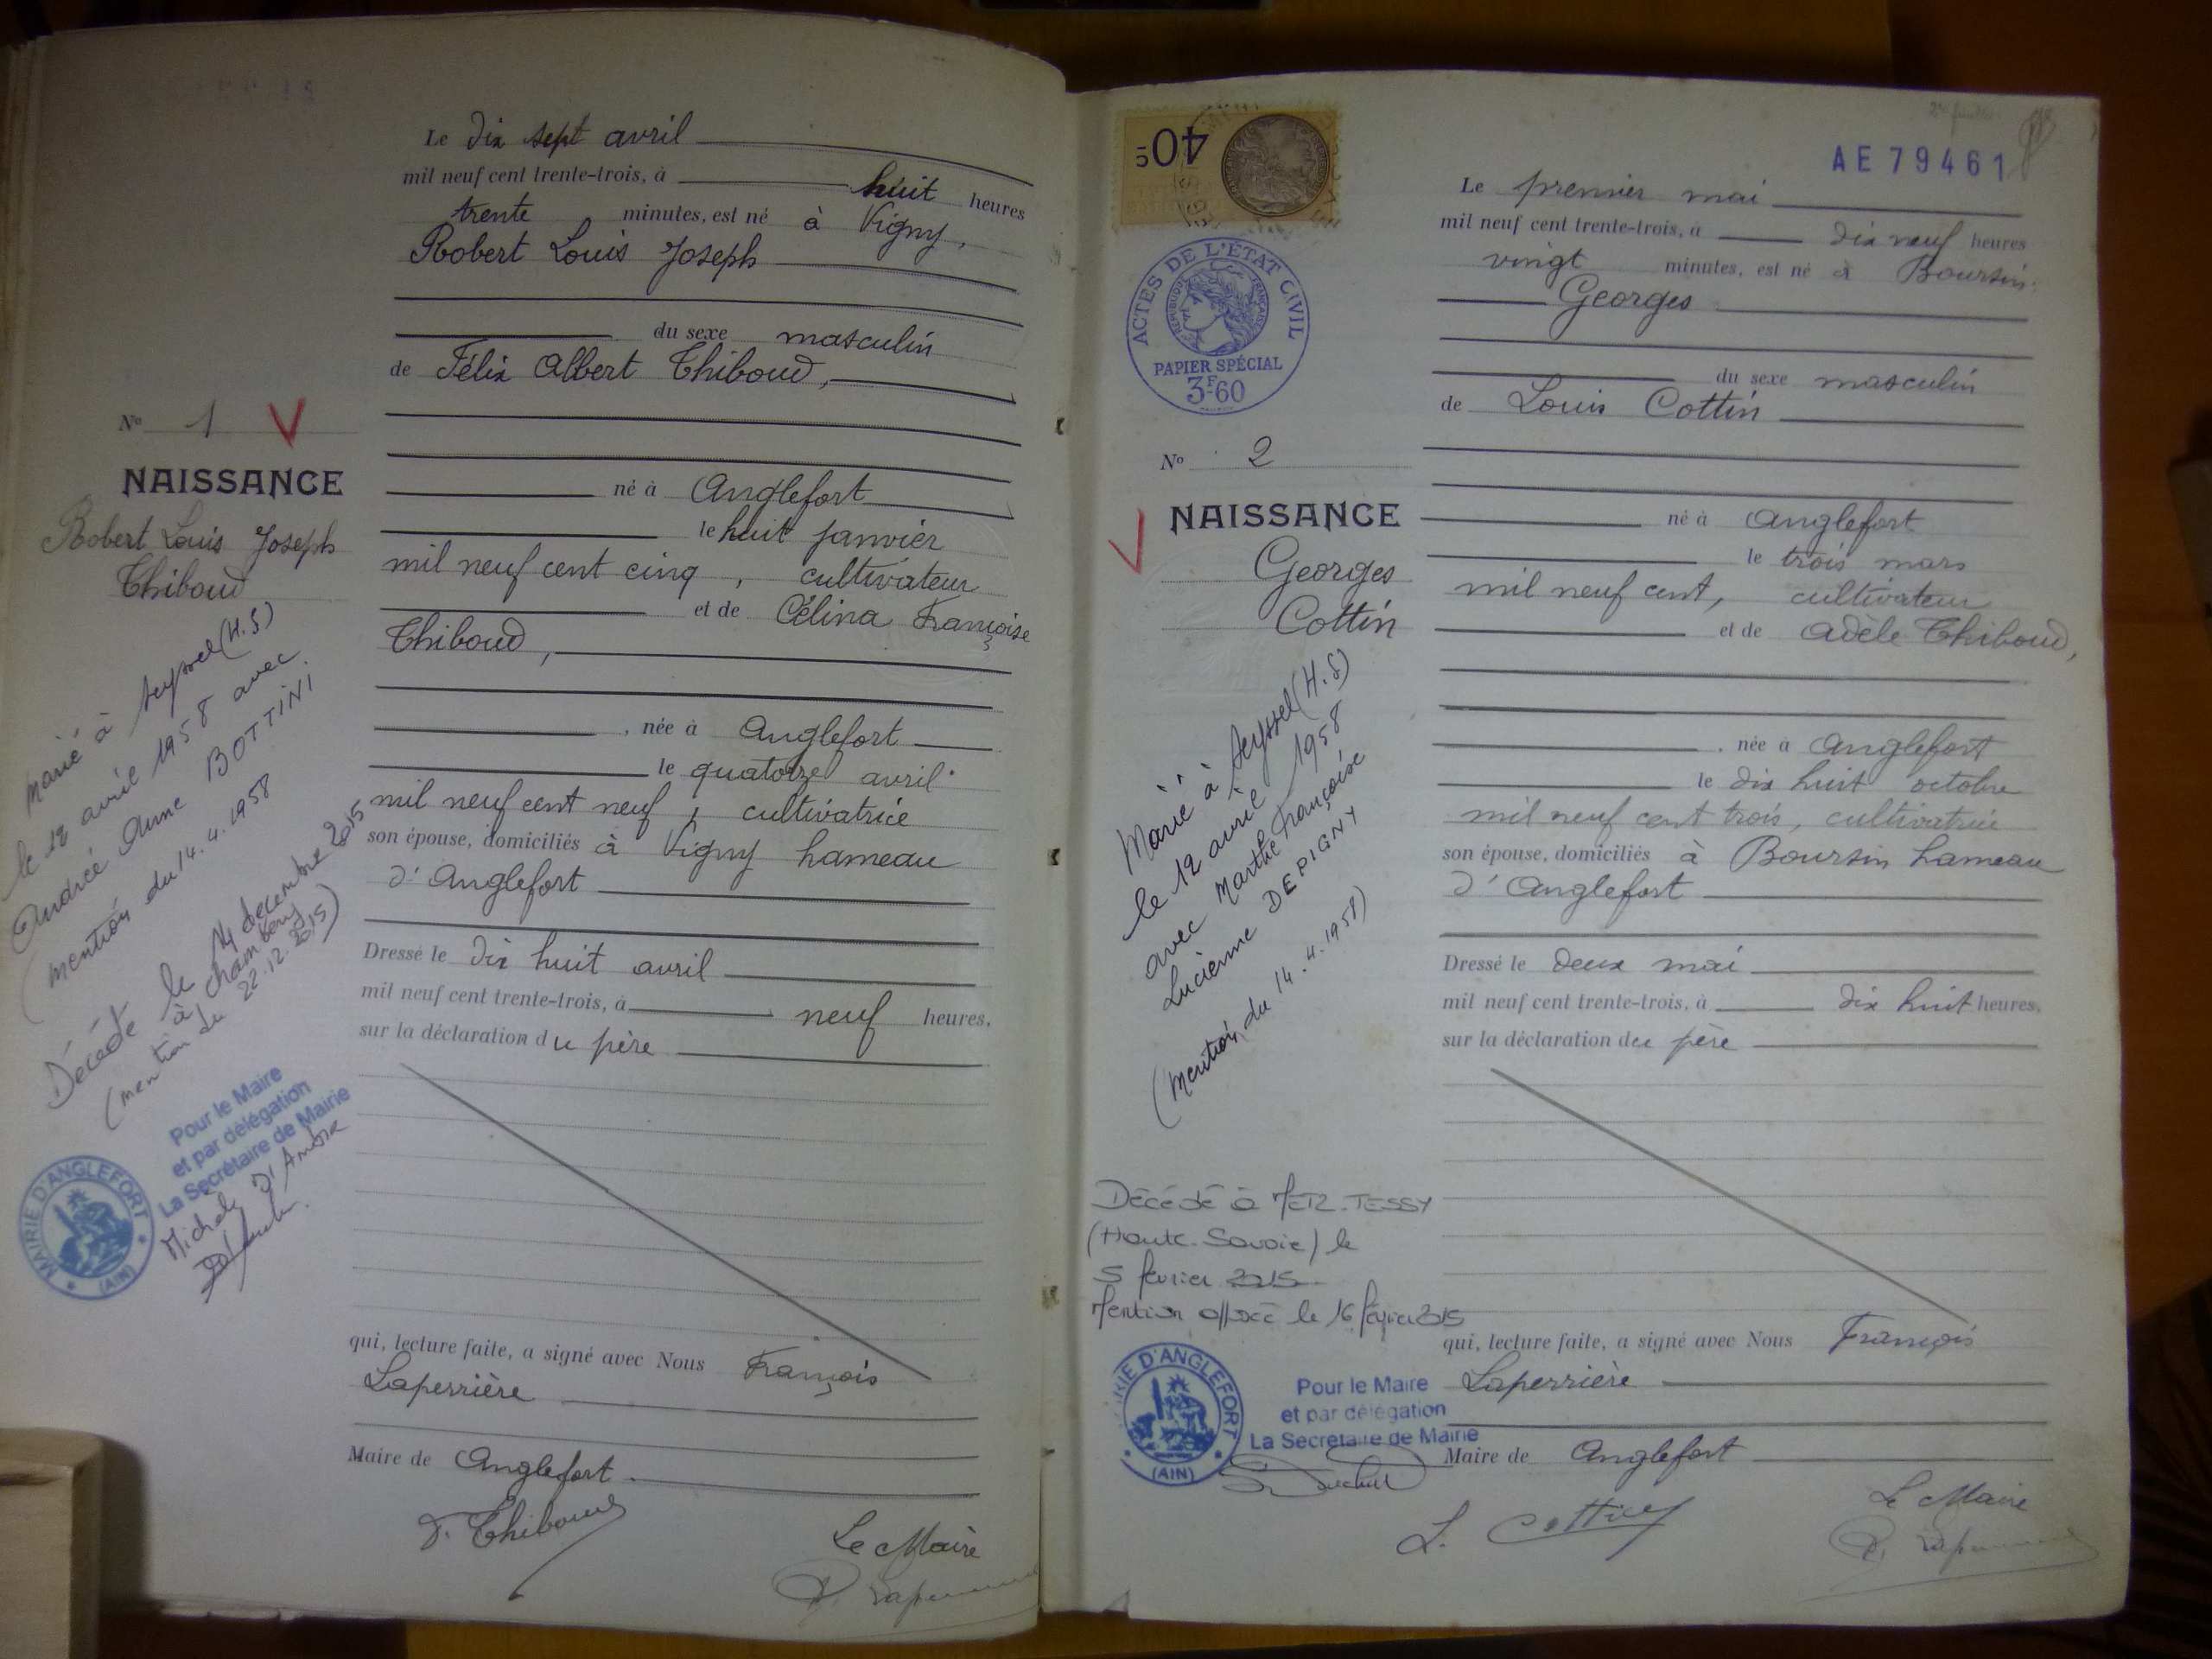 Le dix sept avril
mil neuf cent trente-trois, à huit heures
trente minutes, est né à Vigny,
Robert Louis Joseph
du sexe masculin
de Félix Albert Thiboud,
né à Anglefort
le huit janvier
mil neuf cent cinq, cultivateur
et de Célina Françoise
Thiboud,
, née à Anglefort
le quatorze avril
mil neuf cent neuf, cultivatrice
son épouse, domiciliés à Vigny hameau
d'Anglefort
Dressé le dix huit avril
mil neuf cent trente-trois, à neuf heures,
sur la déclaration du père
qui, lecture faite, a signé avec Nous François
Laperrière
Maire de Anglefort.
F. Thiboud
Le Maire
No 1 V
NAISSANCE
Robert Louis Joseph
Thiboud
Marié à Seyssel (H.S)
le 12 avril 1958 avec
Andrée Anne BOTTINI.
(mention du 14.4.1958
Décédé le 14 décembre 2015
à Chambéry
(mention du 22.12.2015)
Pour le Maire
et par délégation
La Secrétaire de Mairie
Michèle D'Ambra
MAIRIE D'ANGLEFORT
(AIN)
40c
AE 79461
ACTES DE L'ÉTAT CIVIL
RÉPUBLIQUE FRANÇAISE
PAPIER SPÉCIAL
3F-60
Le premier mai
mil neuf cent trente-trois, à dix neuf heures
vingt minutes, est né à Boursin
Georges
du sexe masculin
de Louis Cottin
né à Anglefort
le trois mars
mil neuf cent, cultivateur
et de Adèle Thiboud,
, née à Anglefort
le dix huit octobre
mil neuf cent trois, cultivatrice
son épouse, domiciliés à Boursin hameau
d'Anglefort
Dressé le deux mai
mil neuf cent trente-trois, à dix huit heures,
sur la déclaration du père
qui, lecture faite, a signé avec Nous François
Laperrière
Maire de Anglefort
L. Cottin
Le Maire
No 2
V NAISSANCE
Georges
Cottin
Marié à Seyssel (H.S)
le 12 avril 1958
avec Marthe Françoise
Lucienne DEPIGNY
(Mention du 14.4.1958)
Décédé à METZ-TESSY
(Haute-Savoie) le
5 février 2015
Mention apposée le 16 février 2015
MAIRIE D'ANGLEFORT
(AIN)
Pour le Maire
et par délégation
La Secrétaire de Mairie